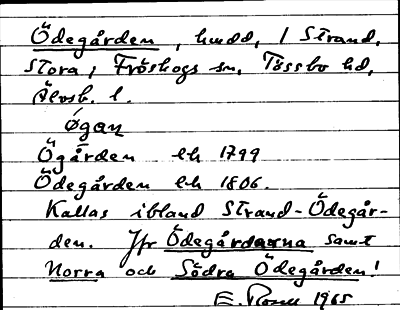 Ödegården, hmdd, / Strand,
Stora, Fröskogs sn, Tössbo hd,
Älvsb. l.
Øgan
Ögården ek 1799
Ödegården ek 1806.
Kallas ibland Strand-Ödegår-
den. Jfr Ödegårdarna samt
Norra och Södra Ödegården!
E. Rosell 1965